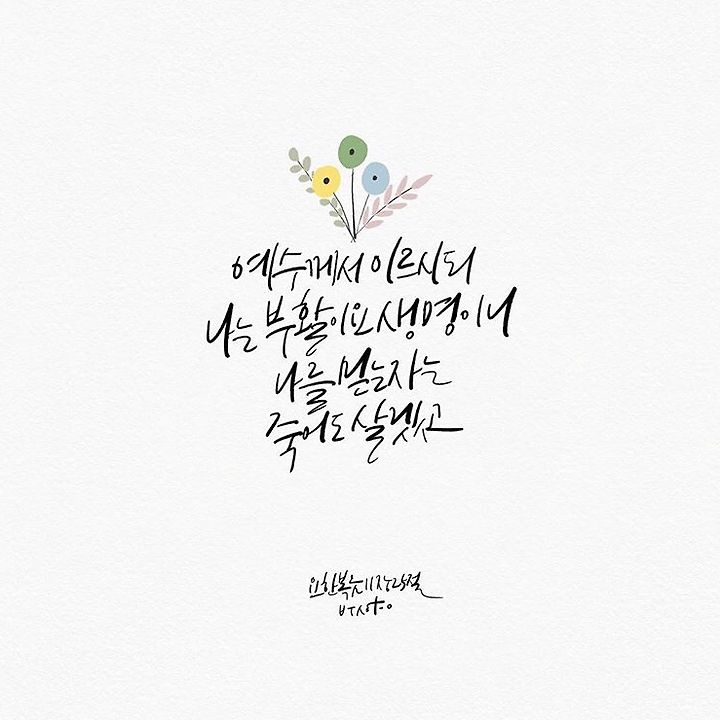 예수께서 이르시되
나는 부활이요 생명이니
나를 믿는자는
죽어도 살겠고
요한복음 11장 25절